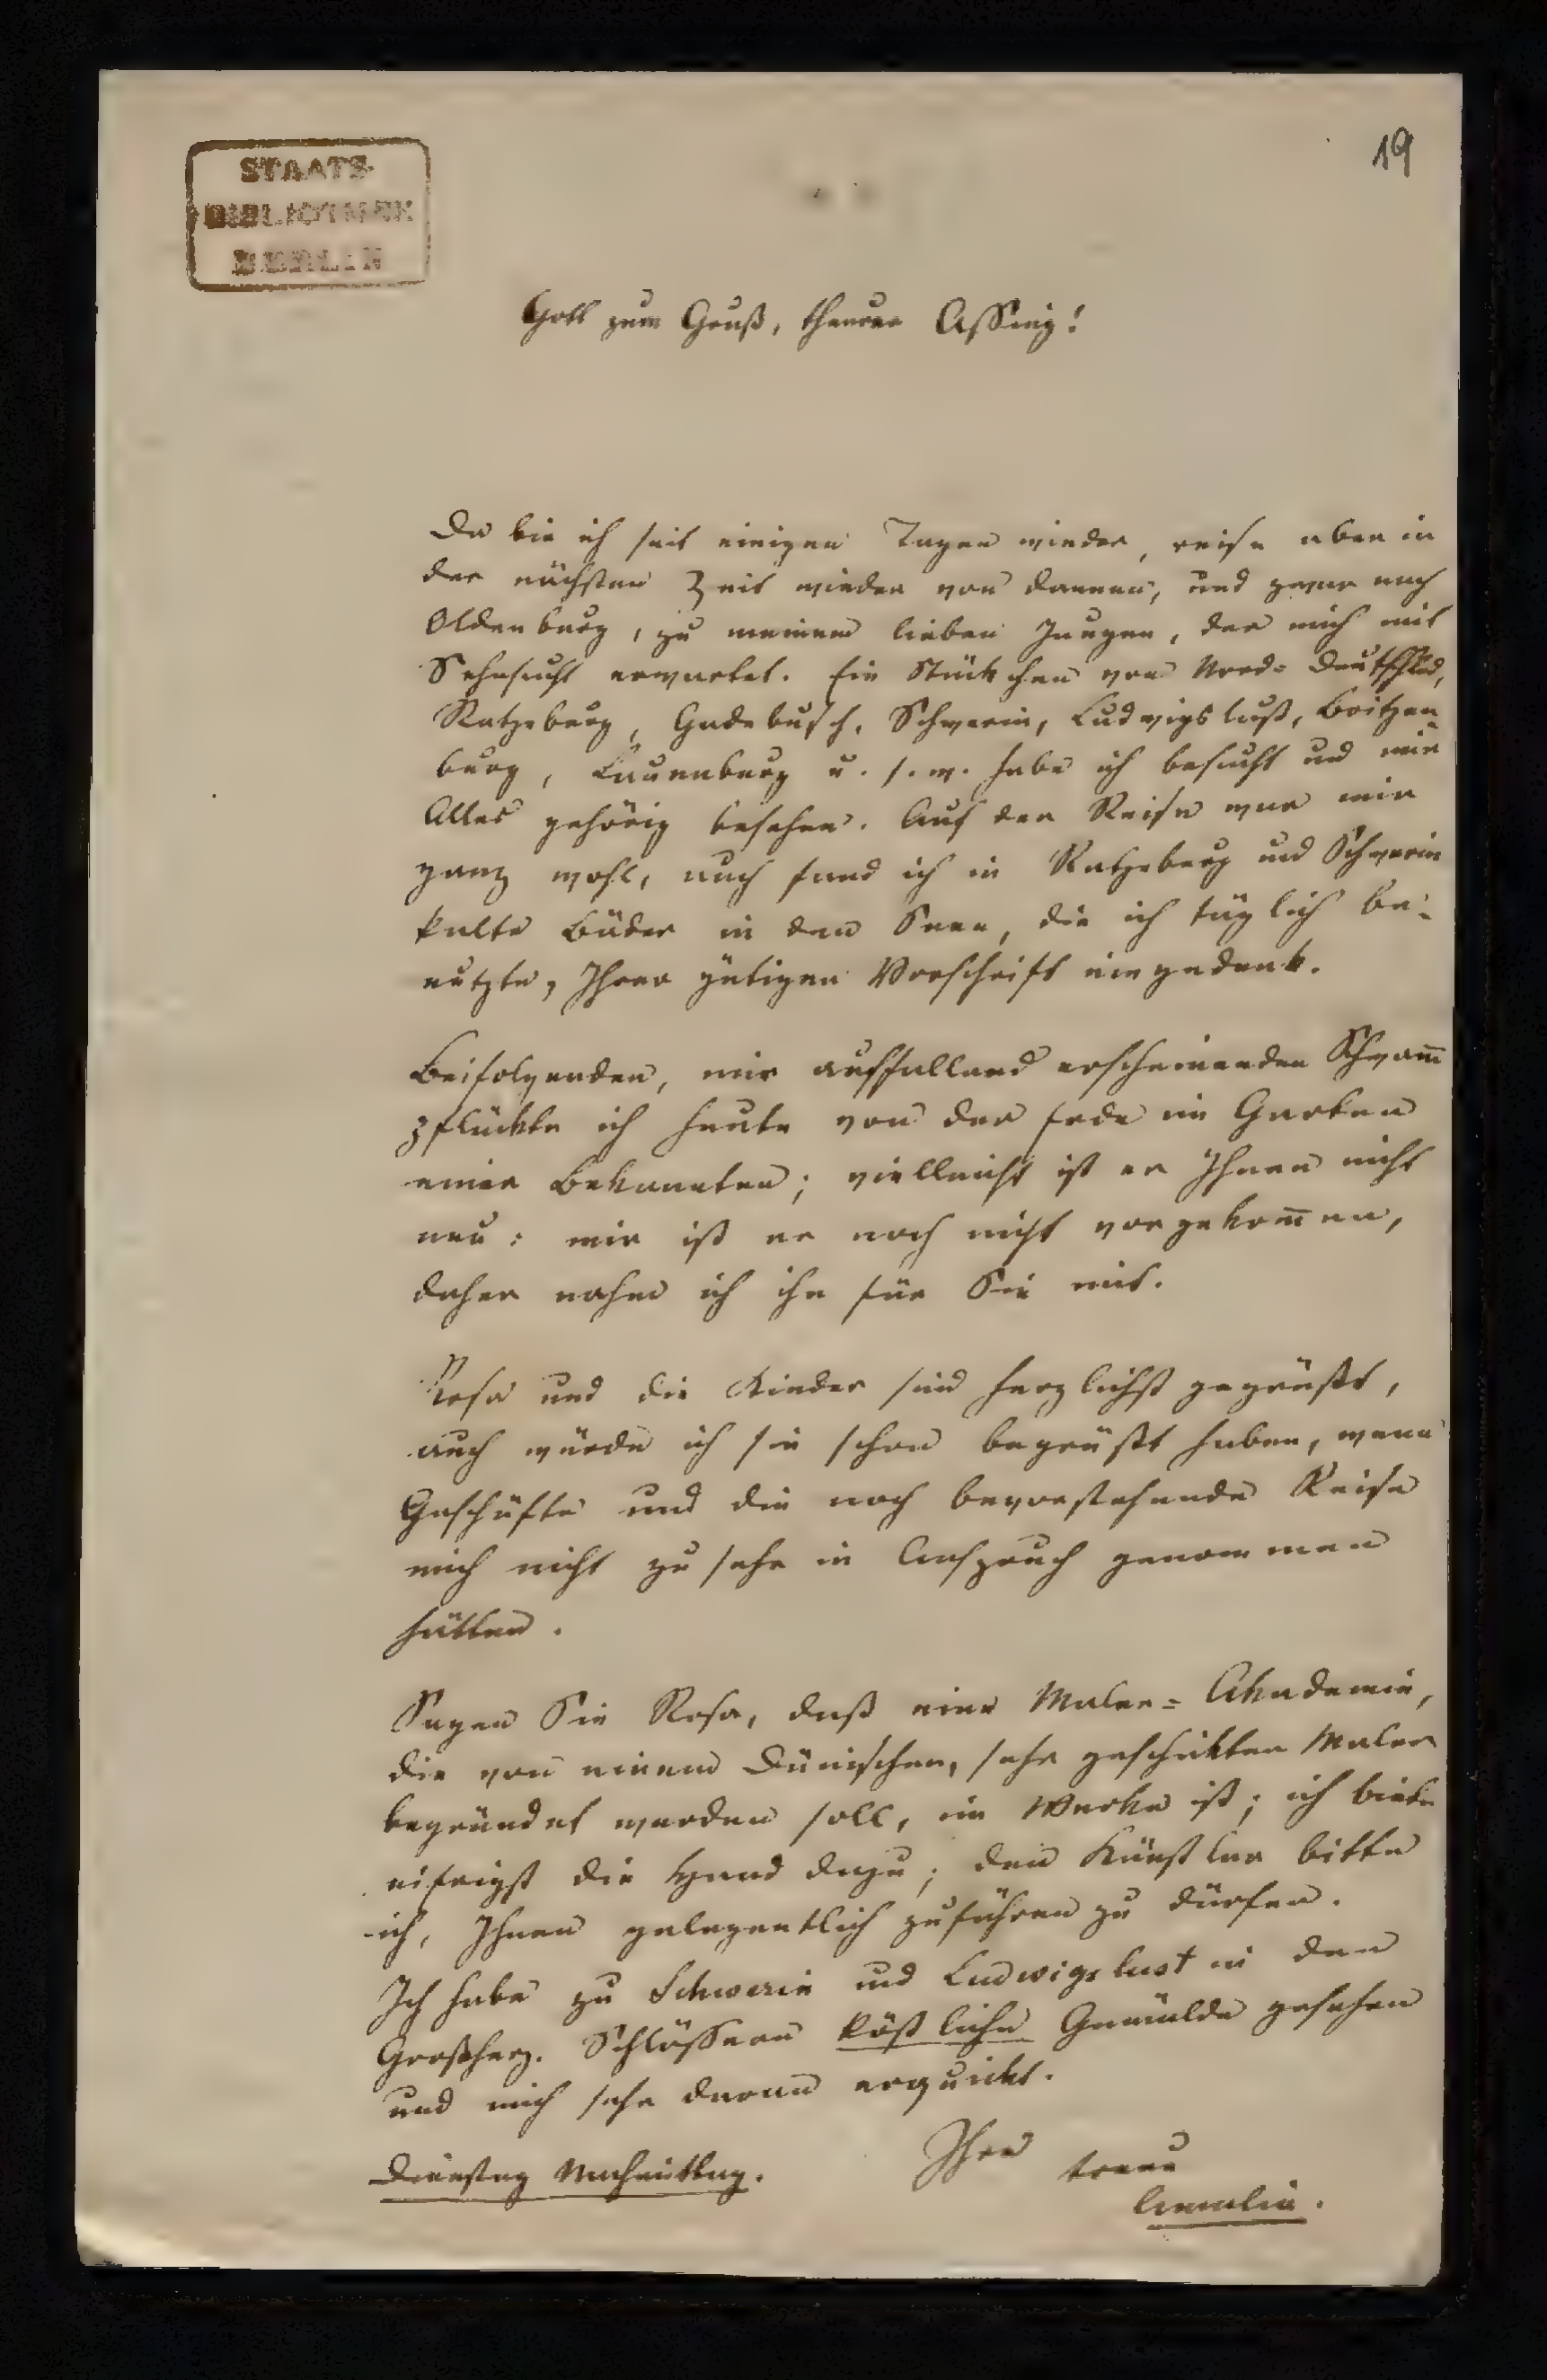 19
STAATS-
BIBLIOTHEK
BERLIN
Gott zum Gruß, theurer Assing!
Da bin ich seit einigen Tagen wieder, reise aber in
der nächsten Zeit wieder von dannen, und zwar nach
Oldenburg, zu meinem lieben Jungen, der mich mit
Sehnsucht erwartet. Ein Stückchen von Nord-Deutschld,
Ratzeburg, Gadebusch, Schwerin, Ludwigslust, Boitzen-
burg, Lauenburg u. s. w. habe ich besucht und mir
Alles gehörig besehen. Auf der Reise war mir
ganz wohl, auch fand ich in Ratzeburg und Schwerin
kalte Bäder in den Seen, die ich täglich be-
nutzte, Ihrer gütigen Vorschrift eingedenk.
Beifolgenden, mir auffallend erscheinenden Schwam̅
pflückte ich heute von der Erde im Garten
einer Bekannten; vielleicht ist er Ihnen nicht
neu: mir ist er noch nicht vorgekom̅en,
daher nahm ich ihn für Sie mit.
Rosa und die Kinder sind herzlichst gegrüßt,
auch würde ich sie schon begrüßt haben, wenn
Geschäfte und die noch bevorstehende Reise
mich nicht zu sehr in Anspruch genommen
hätten.
Sagen Sie Rosa, daß eine Maler-Akademie,
die von einem Dänischen, sehr geschickten Maler
begründet werden soll, im Werke ist; ich biete
eifrigst die Hand dazu; den Künstler bitte
ich, Ihnen gelegentlich zuführen zu dürfen.
Ich habe zu Schwerin und Ludwigslust in den
Großherz. Schlössern köstliche Gemälde gesehen
und mich sehr daran erquickt.
Ihre
Dienstag Nachmittag.
treue
Amalia.